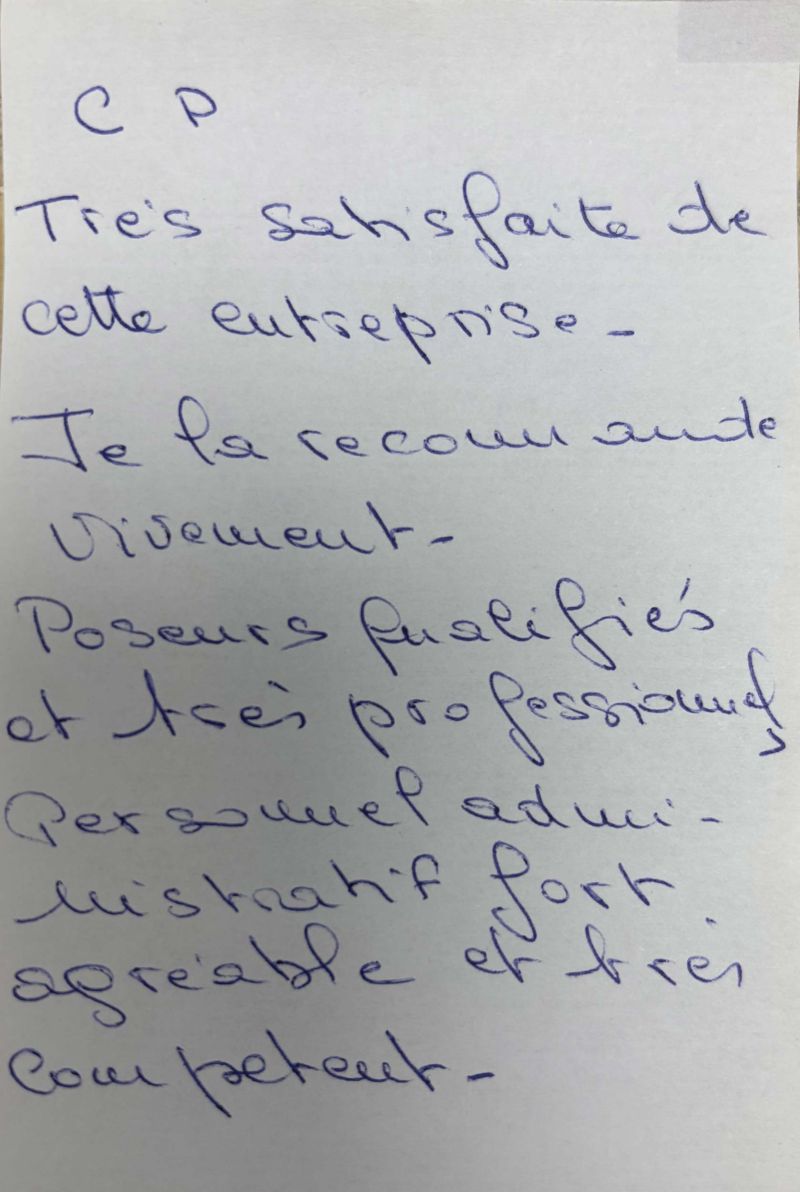 C P
Très satisfaite de
cette entreprise -
Je la recommande
vivement -
Poseurs qualifiés
et très professionnels
Personnel admi-
nistratif fort
agréable et très
competent -